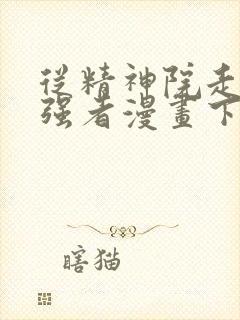 從精神院走
强者漫畫下
瞎猫